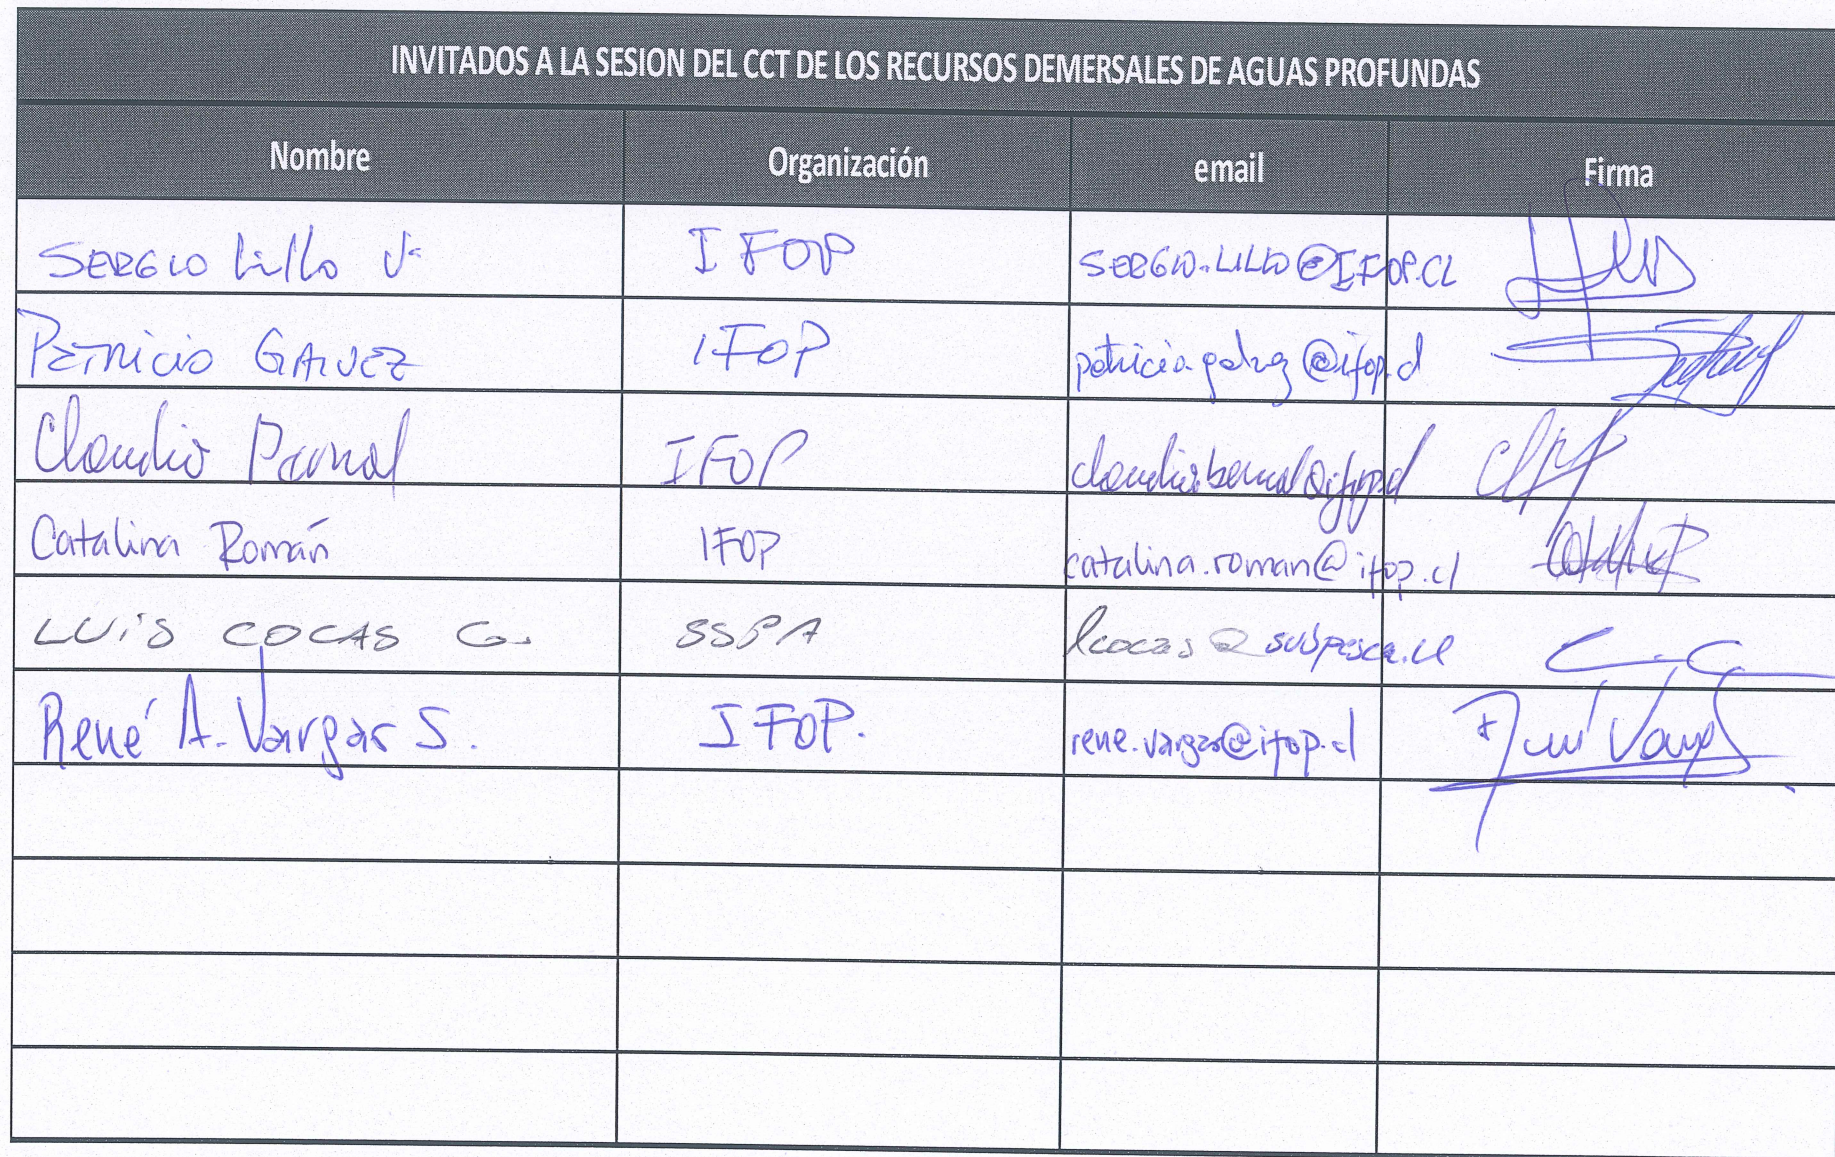 INVITADOS A LA SESION DEL CCT DE LOS RECURSOS DEMERSALES DE AGUAS PROFUNDAS
Nombre Organización email Firma
SERGIO Lillo V. IFOP SERGIO.LILLO@IFOP.CL
Patricio GALVEZ IFOP patricio.galvez@ifop.cl
Claudio Bernal IFOP claudio.bernal@ifop.cl
Catalina Román IFOP catalina.roman@ifop.cl
LUIS COCAS G. SSPA lcocas@subpesca.cl
René A. Vargas S. IFOP. rene.vargas@ifop.cl René Vargas